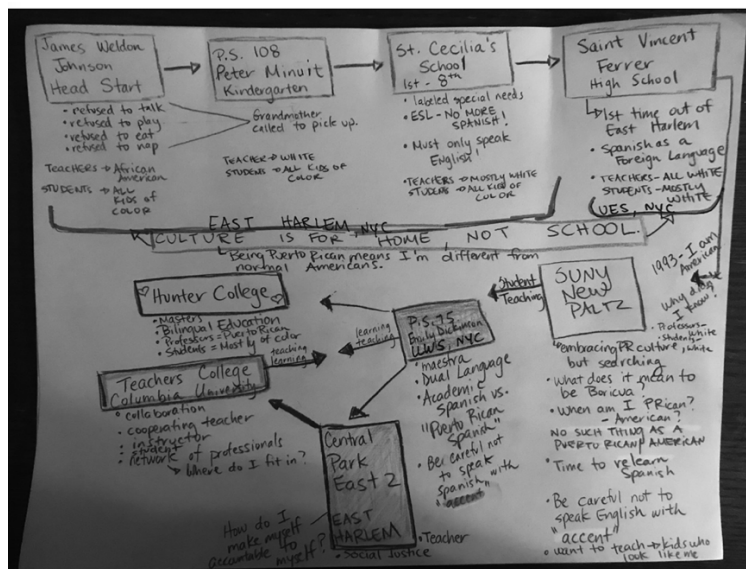 James Weldon
Johnson
Head Start
• refused to talk
• refused to play
• refused to eat
• refused to nap
Grandmother
called to pick up.
TEACHERS → African
American
STUDENTS → ALL
KIDS OF
COLOR
P.S. 108
Peter Minuit
Kindergarten
TEACHER → WHITE
STUDENTS → ALL KIDS OF
COLOR
St. Cecilia's
School
1st - 8th
• labeled special needs
• ESL - NO MORE
SPANISH!
• Must only speak
English!
• TEACHERS → MOSTLY WHITE
STUDENTS → ALL KIDS OF
COLOR
Saint Vincent
Ferrer
High School
1st time out of
East Harlem
• Spanish as a
Foreign Language
• TEACHERS - ALL WHITE
STUDENTS - MOSTLY
WHITE
EAST HARLEM, NYC
UES, NYC
CULTURE IS FOR HOME, NOT SCHOOL.
Being Puerto Rican means I'm different from
normal Americans.
1993 - I am
American
Why didn't
I know?
• Professors -
Students White
White
SUNY
New
PALTZ
• embracing PR culture,
but searching
• What does it mean to
be Boricua?
• When am I PRican?
- American?
NO SUCH THING AS A
PUERTO RICAN/AMERICAN
• Time to relearn
Spanish
• Be careful not to
speak English with
"accent"
• want to teach → kids who
look like me
Student
Teaching
P.S. 75
Emily Dickinson
UWS, NYC
• maestra
• Dual Language
• Academic
Spanish vs.
"Puerto Rican
Spanish"
• Be careful not
to speak
Spanish with
"accent"
Hunter College
• Masters
• Bilingual Education
• Professors = Puerto Rican
• Students = Mostly of color
learning
teaching
teaching
learning
Teachers College
Columbia University
• collaboration
• cooperating teacher
• instructor
• student
• network of professionals
→ Where do I fit in?
Central
Park
East 2
EAST
HARLEM
How do I
make myself
accountable to
myself?
• Teacher
• Social Justice